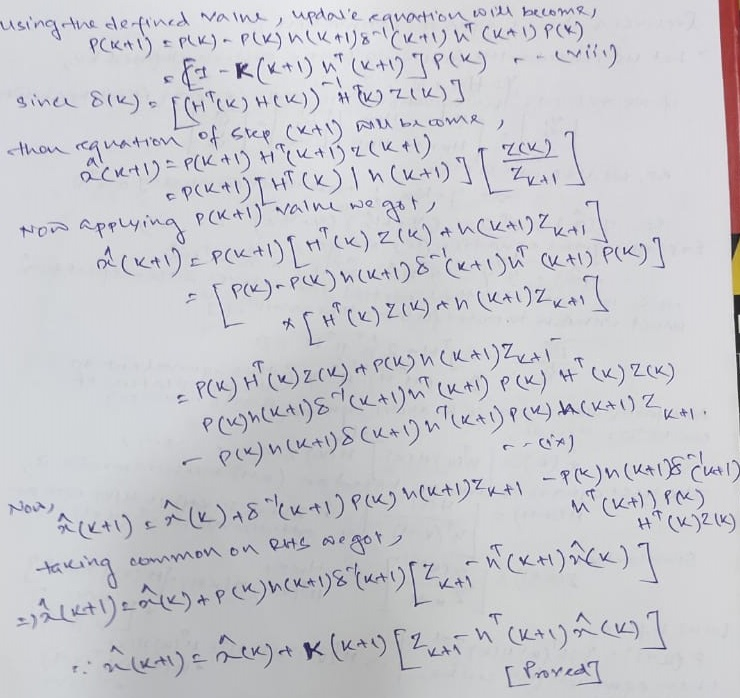 using the defined value, update equation will become,
P(K+1) = P(K) - P(K) h(K+1) δ⁻¹(K+1) hᵀ(K+1) P(K)
= [I - K(K+1) hᵀ(K+1)] P(K) -- (viii)
since δ(K) = [(Hᵀ(K) H(K))⁻¹ Hᵀ(K) Z(K)]
then equation of step (K+1) will become,
x̂(K+1) = P(K+1) Hᵀ(K+1) Z(K+1)
= P(K+1) [Hᵀ(K) | h(K+1)] [Z(K) / Z_{K+1}]
Now applying P(K+1) value we got,
x̂(K+1) = P(K+1) [Hᵀ(K) Z(K) + h(K+1) Z_{K+1}]
= [P(K) - P(K) h(K+1) δ⁻¹(K+1) hᵀ (K+1) P(K)]
× [Hᵀ(K) Z(K) + h(K+1) Z_{K+1}]
= P(K) Hᵀ(K) Z(K) + P(K) h(K+1) Z_{K+1} -
P(K) h(K+1) δ⁻¹(K+1) hᵀ(K+1) P(K) Hᵀ(K) Z(K)
- P(K) h(K+1) δ(K+1) hᵀ(K+1) P(K) h(K+1) Z_{K+1}.
-- (ix)
Now,
x̂(K+1) = x̂(K) + δ⁻¹(K+1) P(K) h(K+1) Z_{K+1} - P(K) h(K+1) δ⁻¹(K+1)
hᵀ(K+1) P(K)
Hᵀ(K) Z(K)
taking common on RHS we got,
=> x̂(K+1) = x̂(K) + P(K) h(K+1) δ⁻¹(K+1) [Z_{K+1} - hᵀ(K+1) x̂(K)]
∴ x̂(K+1) = x̂(K) + K(K+1) [Z_{K+1} - hᵀ(K+1) x̂(K)]
[Proved]